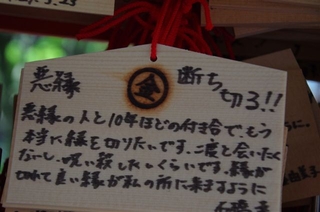 悪縁 金 断ち切る!!
悪縁の人と10年ほどの付き合で、もう
本当に縁を切りたいです。二度と会いたく
ないし、呪い殺したいくらいです。縁が
切れて良い縁が私の所に来ますように